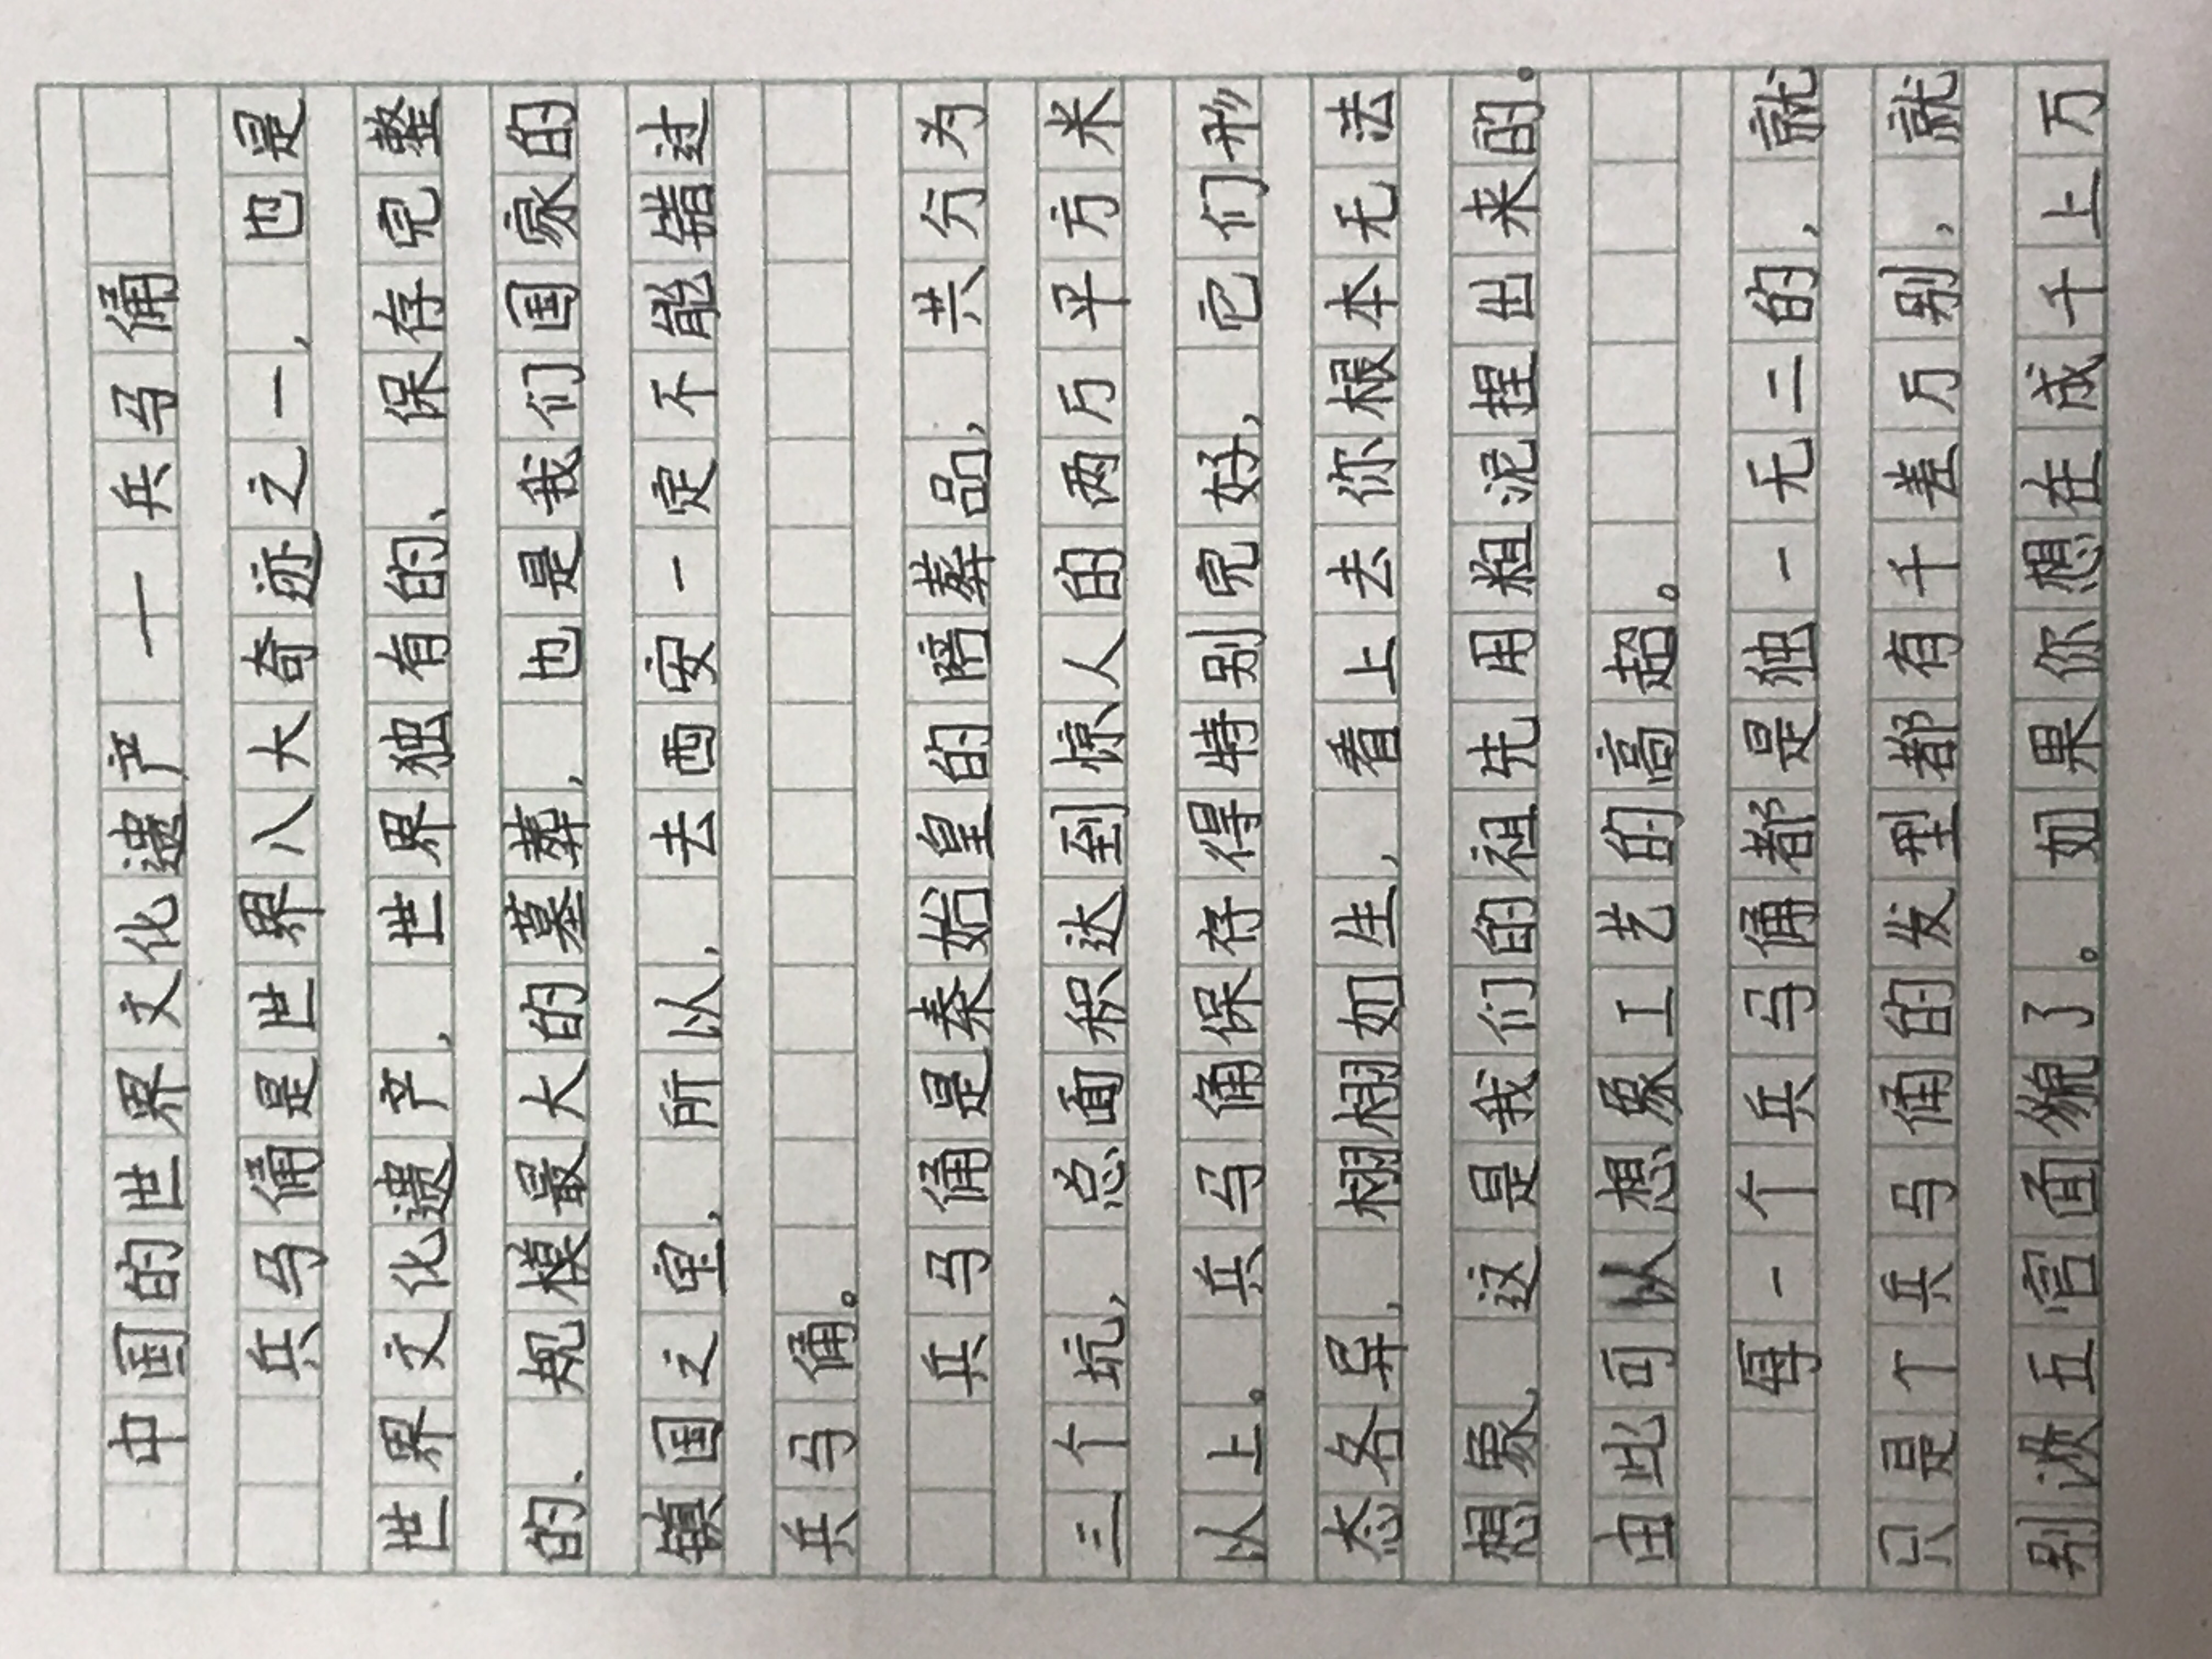 中国的世界文化遗产——兵马俑
兵马俑是世界八大奇迹之一，也是
世界文化遗产，世界独有的、保存完整
的、规模最大的墓葬，也是我们国家的
镇国之宝，所以，去西安一定不能错过
兵马俑。
兵马俑是秦始皇的陪葬品，共分为
三个坑，总面积达到惊人的两万平方米
以上。兵马俑保存得特别完好，它们形
态各异，栩栩如生，看上去你根本无法
想象，这是我们的祖先用粗泥捏出来的。
由此可以想象工艺的高超。
每一个兵马俑都是独一无二的，就
只是个兵马俑的发型都有千差万别，就
别谈五官面貌了。如果你想在成千上万